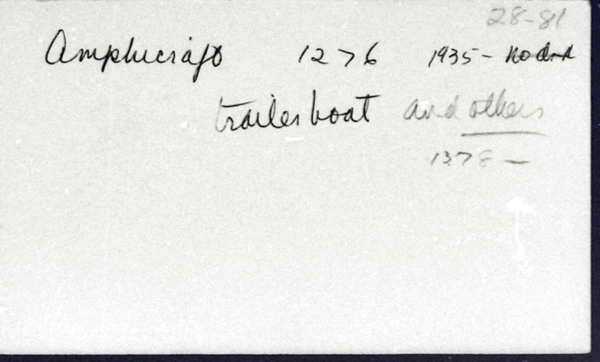 28-81
Amphicraft 1276 1935-
trailer boat and others
1378 -